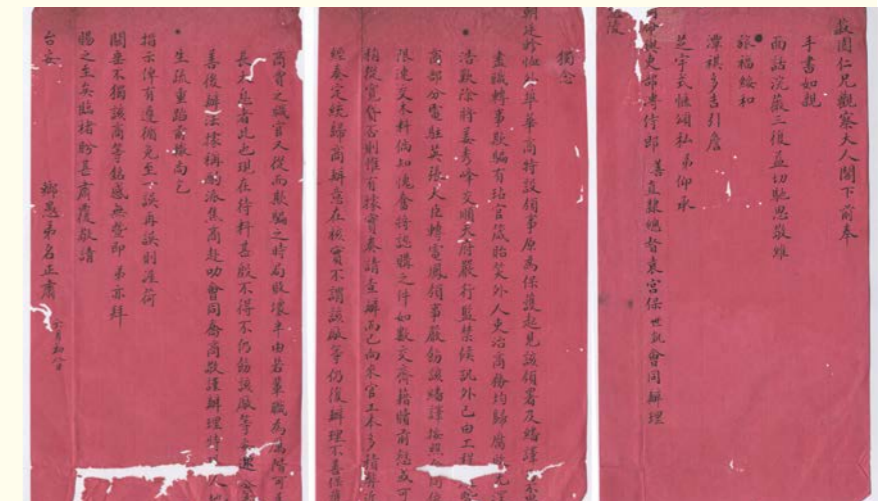 圃仁兄觀察大人閣下前奉
手書如親
面話浣薇三復益切馳思敬維
旅福綏和
潭祺多吉引詹
芝宇式愜頌私弟仰承
直隸總督袁宮保世凱會同辦理
陵
獨念
朝廷軫恤外洋華商特設領事原為保護起見該領署及繙譯
盡職轉事欺騙有玷官箴貽笑外人吏治商務均歸腐敗
浩歎除將姜秀峰交順天府嚴行監禁候訊外已由工程
商部分電駐英張大臣轉電鳳領事嚴飭該繙譯按照合同
限速交木料倘知愧奮將認購之件如數交齊藉贖前愆或可
稍從寬貸否則惟有據實奏請查辦而已向來官工本多積弊
經奏定統歸商辦意在核實不謂該廠等仍復辦理不善
之職官又從而欺騙之時局敗壞半由若輩職為厲階可
長太息者此也現在待料甚殷不得不仍飭該廠等
善後辦法據稱酌派焦商赴叻會同喬商敬謹辦理
生疏重蹈前轍尚乞
指示俾有遵循免至一誤再誤則
關垂不獨該商等銘感無暨即弟亦拜
賜之至矣臨楮甚肅覆敬請
台安
鄉愚弟名正肅
六月初八日